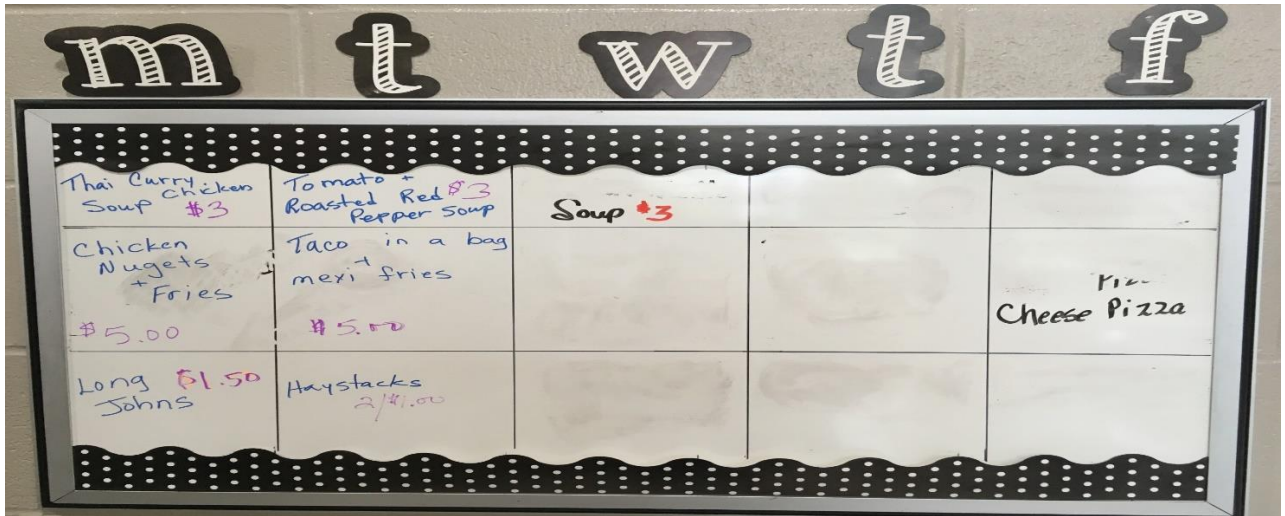 m t w t f
Thai Curry Chicken
Soup $3
Tomato +
Roasted Red $3
Pepper Soup
Soup $3
Chicken
Nugets
+ Fries
$5.00
Taco in a bag
+
mexi fries
$5.00
Cheese Pizza
Long $1.50
Johns
Haystacks
2/$1.00